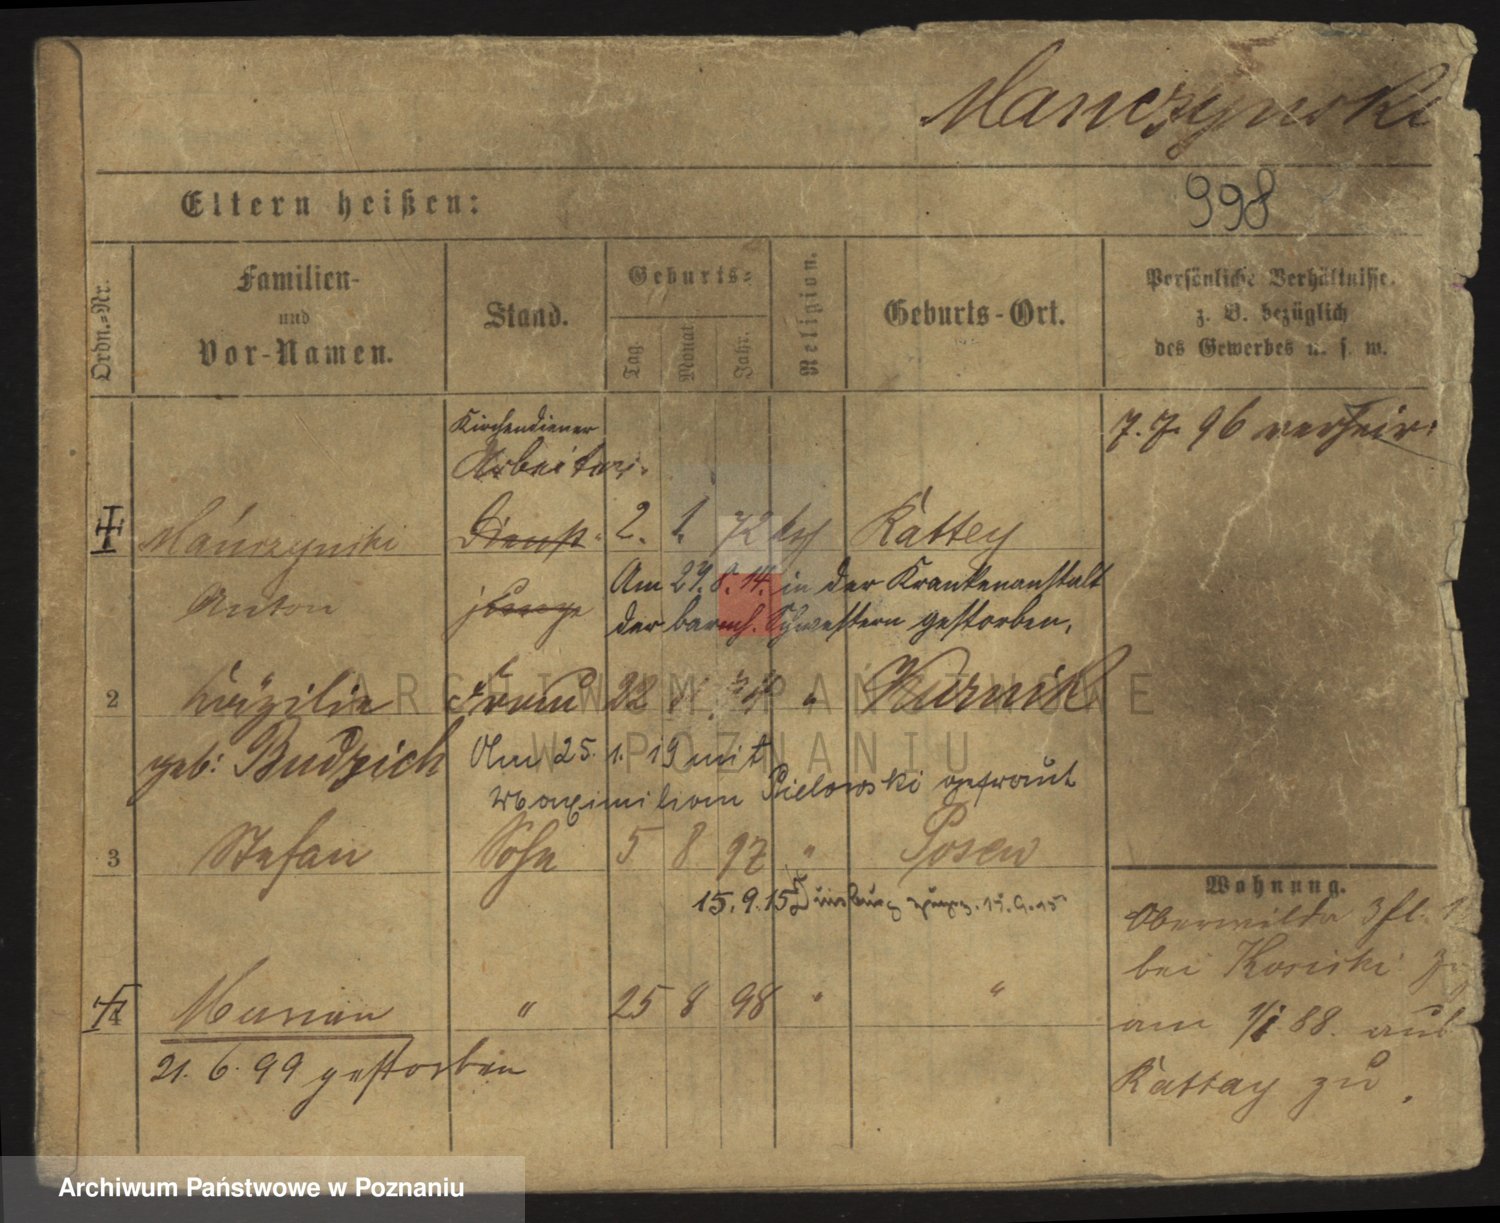 Manczynski
Eltern heißen:
998
Ordn.=Nr.
Familien-
und
Vor-Namen.
Stand.
Geburts=
Tag.
Monat
Jahr.
Religion.
Geburts-Ort.
Persönliche Verhältnisse.
z. B. bezüglich
des Gewerbes u. s. w.
7. 7. 96 verheir:
Kirchendiener
Arbeiter
Mańczynski
Dienst-
2. 1. 72 kth Kattey
Anton
junge
Am 27. 8. 14. in der Krankenanstalt
der barmh. Schwestern gestorben.
2 Cäzilie Frau 22 " Kurnik
geb: Budzich
Am 25. 1. 19 mit
Maximilian Pielowski getraut
3 Stefan Sohn 5 8 97 " Posen
15. 9. 15 Duisburg 15. 9. 15
4 Marian " 25 8 98 " "
21. 6. 99 gestorben
Wohnung.
Oberwilda 3
bei Kosicki
am 1/i 88. aus
Kattay zu.
ARCHIWUM PAŃSTWOWE
W POZNANIU
Archiwum Państwowe w Poznaniu